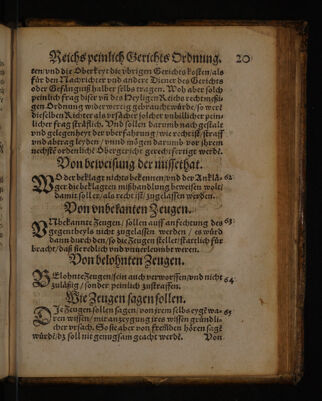 Reichs peinlich Gerichts Ordnung. 20
ten / vnd die Oberkeyt die vbrigen Gerichts kosten / als
für den Nachrichter vnd andere Diener des Gerichts
oder Gefängniß halber selbs tragen. Wo aber solch
peinlich frag diser vñ des Heyligen Reichs rechtmessi-
gen Ordnung wider wertig gebraucht würde / so wert
dieselben Richter als vrsächer solcher vnbillicher pein-
licher frag sträflich. Vnd sollen darumb nach gestalt
vnd gelegenheyt der vberfahrung / wie recht ist / straff
vnd abtrag leyden / vnnd mögen darumb vor jhrem
nechste ordenliche Obergericht gerechtfertigt werdē.
Von beweisung der missethat.
WO der beklagt nichts bekennen / vnd der Anklä- 62
ger die beklagten mißhandlung beweisen wolt /
damit soll er / als recht ist / zugelassen werden.
Von vnbekanten Zeugen.
VNbekannte Zeugen / sollen auff anfechtung des 63
gegentheyls nicht zugelassen werden / es würd
dann durch den / so die Zeugen stellet / stattlich für
bracht / daß sie redlich vnd vnuerleumbt weren.
Von belohnten Zeugen.
BElohnte Zeugen / sein auch verworffen / vnd nicht 64
zuläßig / sonder peinlich zustraffen.
Wie Zeugen sagen sollen.
DIe Zeugen sollen sagen / von jrem selbs eygē wa- 65
ren wissen / mit anzeygung jres wissen gründli-
cher vrsach. So sie aber von frembden hören sagē
würdē / dz soll nit genugsam geacht werdē. Von